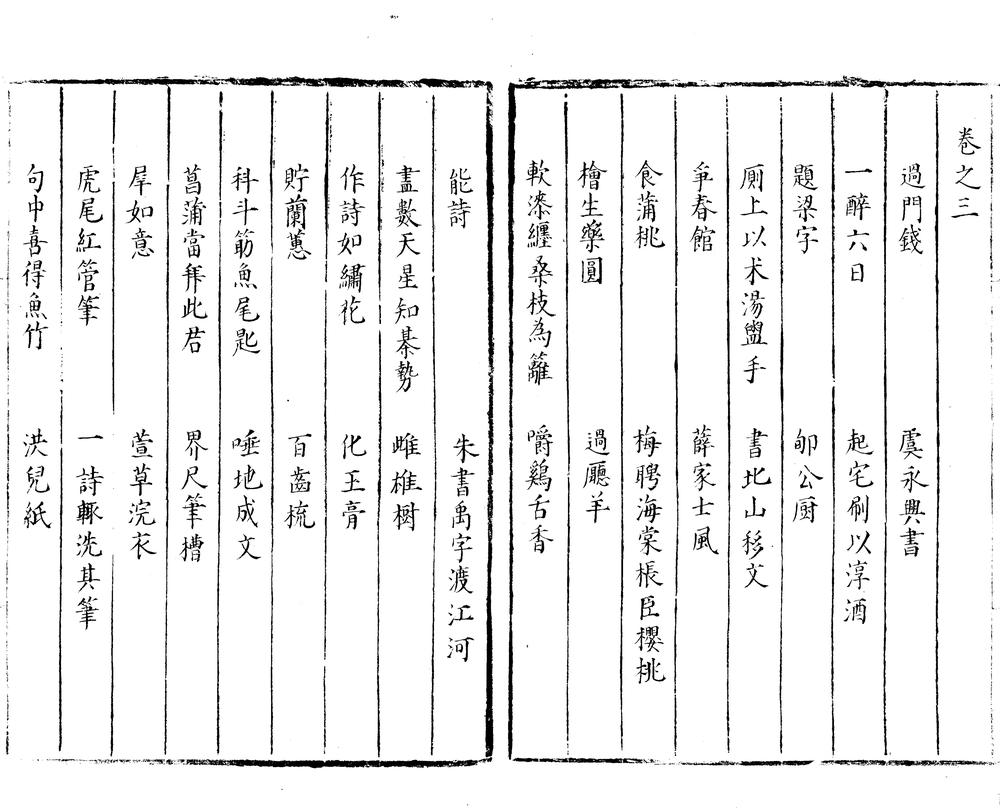 卷之三
過門錢　虞永興書
一醉六日　起宅刷以淳酒
題梁字　郇公厨
厠上以术湯盥手　書北山移文
爭春館　薛家士風
食蒲桃　梅聘海棠棖臣櫻桃
檜生藥圓　過廳羊
軟漆纏桑枝為籬　嚼鷄舌香
能詩　朱書禹字渡江河
盡數天星知棊勢　雌雄樹
作詩如繡花　化玉膏
貯蘭蕙　百齒梳
科斗筯魚尾匙　唾地成文
菖蒲當拜此君　界尺筆槽
犀如意　萱草浣衣
虎尾紅管筆　一詩輒洗其筆
句中喜得魚竹　洪兒紙